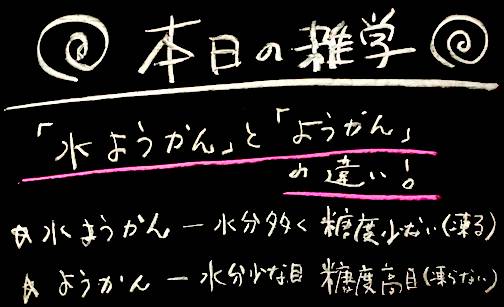 本日の雑学
「水ようかん」と「ようかん」
の違い!
☆水ようかん ー 水分多く 糖度少ない(凍る)
☆ようかん ー 水分少な目 糖度高目(凍らない)